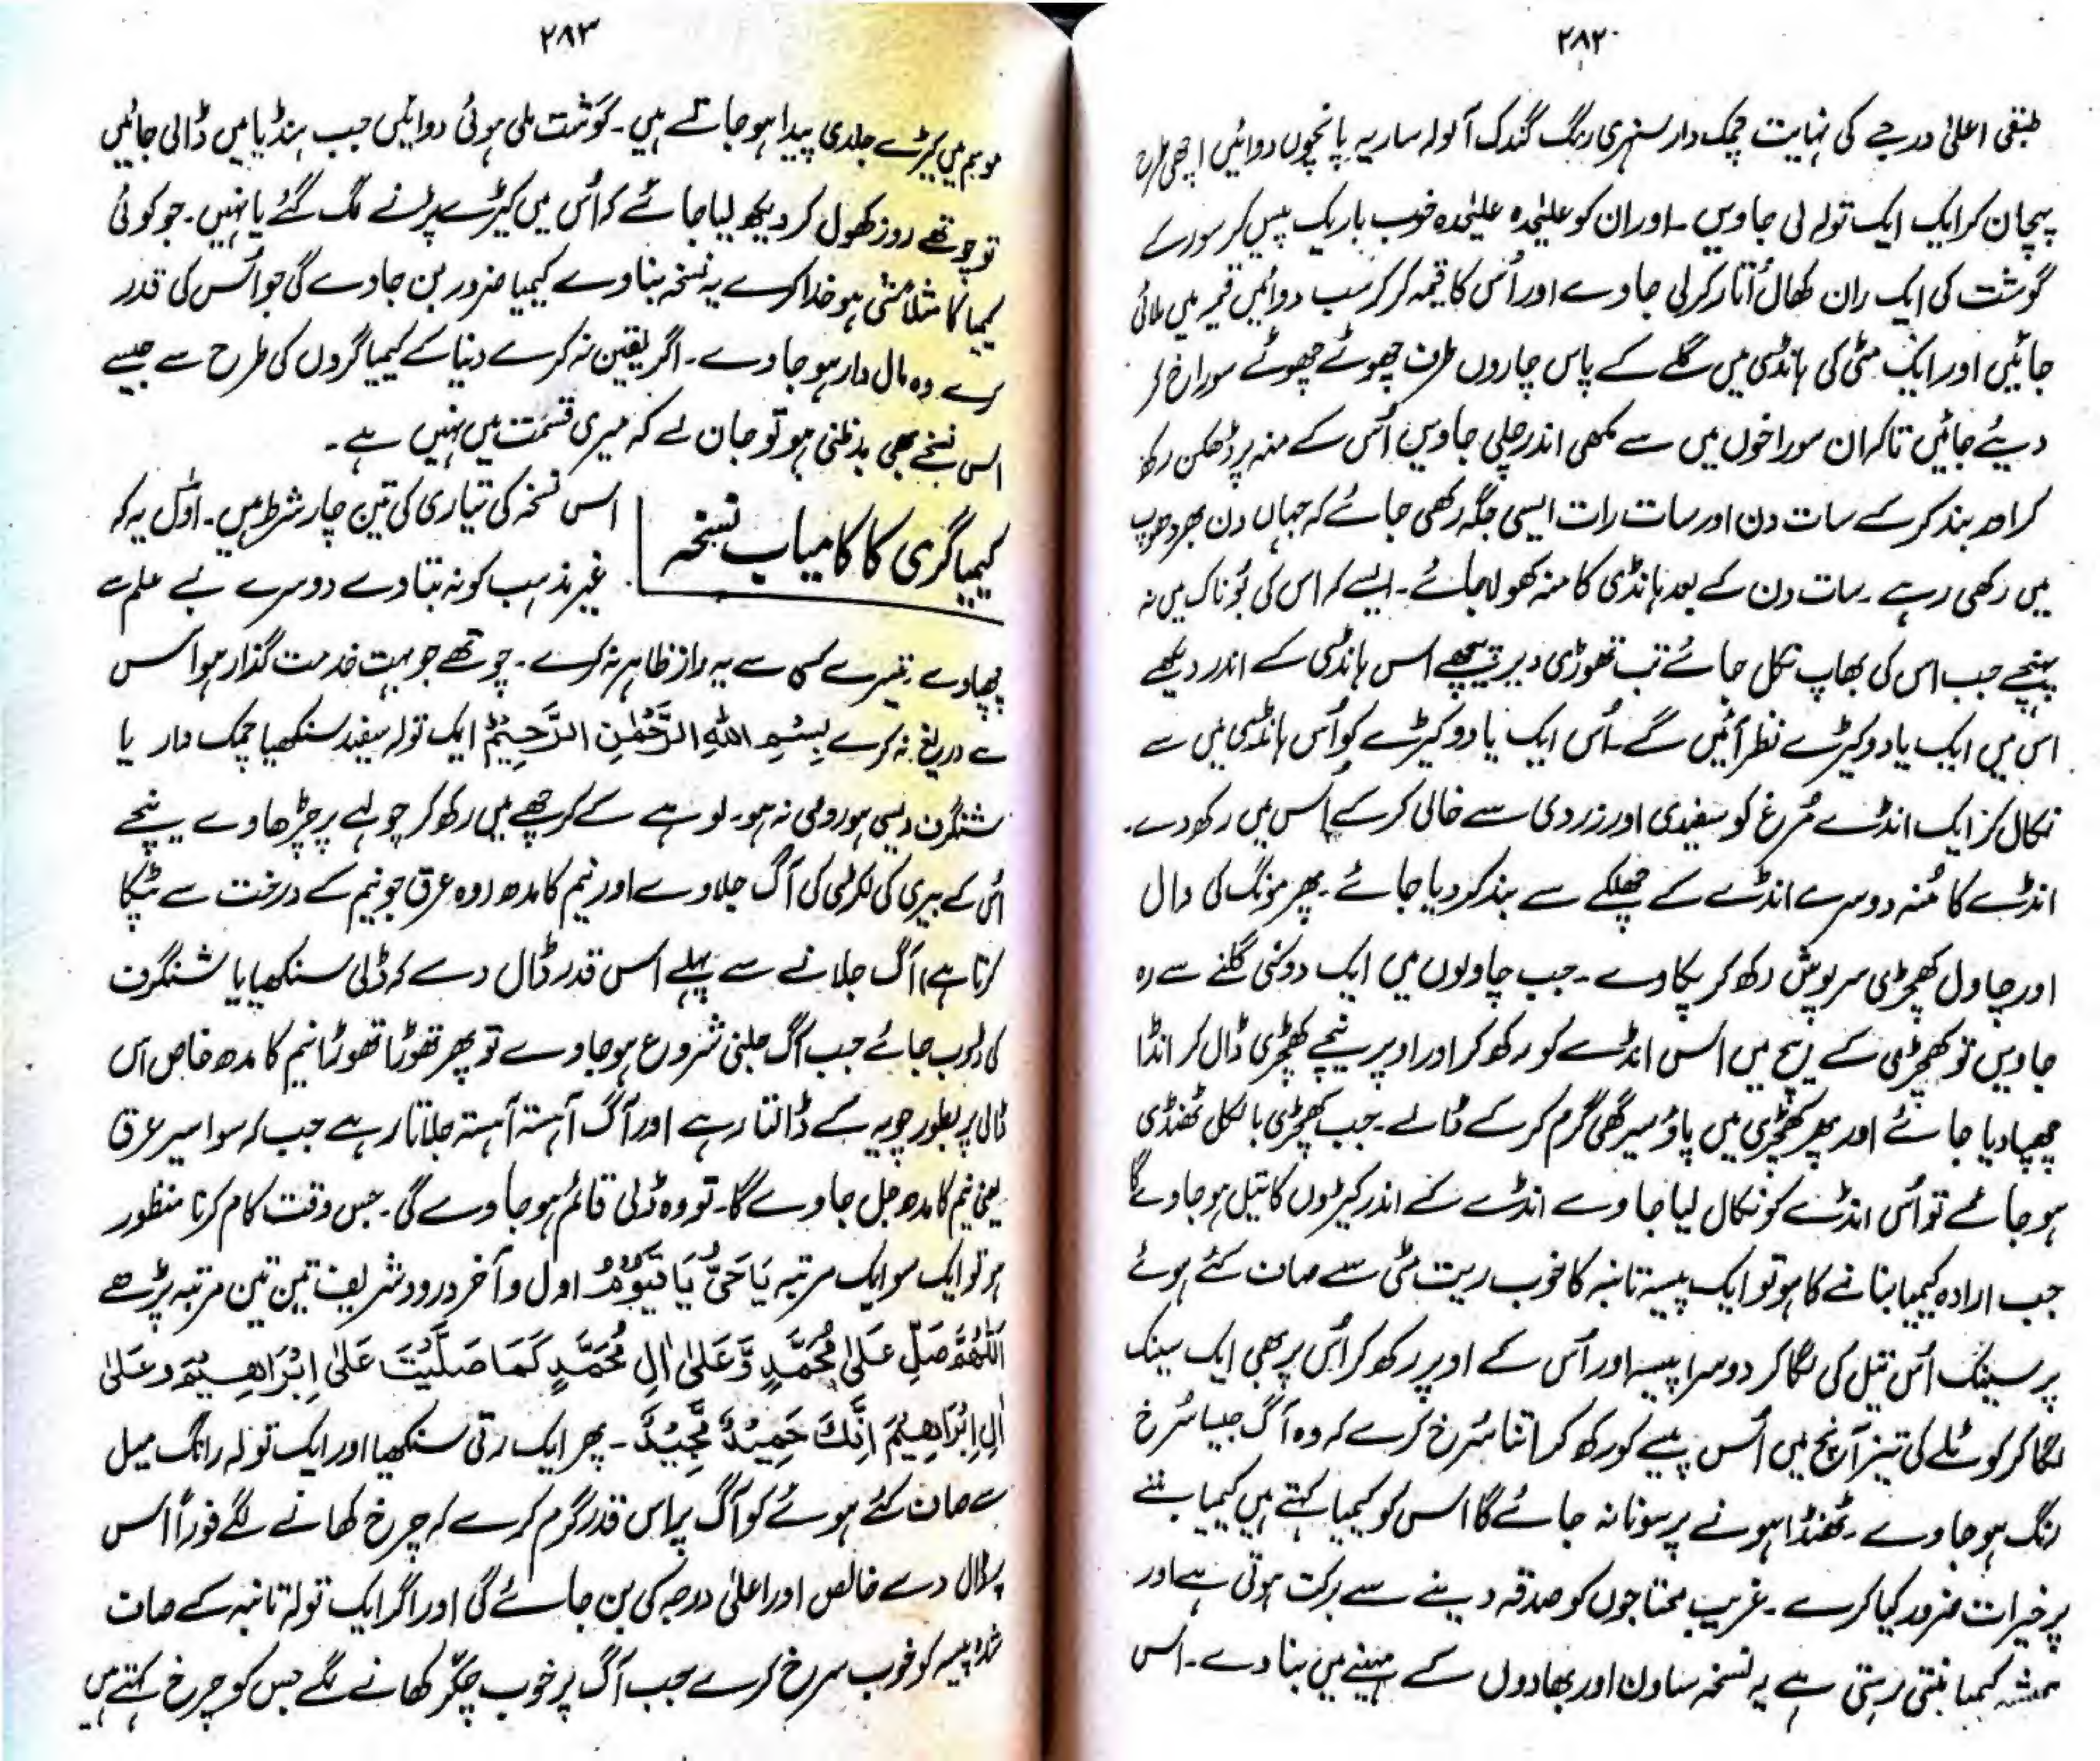 ۲۸۲
طبقی اعلیٰ درجے کی نہایت چمک دار سنہری رنگ گندک آنولہ سار یہ پانچوں دوائیں اچھی طرح
پہچان کر ایک ایک تولہ لی جاویں۔ اور ان کو علیٰحدہ علیٰحدہ خوب باریک پیس کر سور کے
گوشت کی ایک ران کھال اُتار کر لی جاوے اور اُس کا قیمہ کر کر سب دوائیں قیمہ میں ملائی
جائیں اور ایک مٹی کی ہانڈی میں گلے کے پاس چاروں طرف چھوٹے چھوٹے سوراخ کر
دیئے جائیں تاکہ ان سوراخوں میں سے مکھی اندر چلی جاویں اُس کے منہ پر ڈھکن رکھ
کر اور بند کر کے سات دن اور سات رات ایسی جگہ رکھی جائے کہ جہاں دن بھر دھوپ
میں رکھی رہے۔ سات دن کے بعد ہانڈی کا منہ کھولا جائے۔ ایسے کہ اس کی بُو ناک میں نہ
پہنچے جب اس کی بھاپ نکل جائے تب تھوڑی دیر پیچھے اس ہانڈی کے اندر دیکھے
اس میں ایک یا دو کیڑے نظر آئیں گے۔ اُس ایک یا دو کیڑے کو اُس ہانڈی میں سے
نکال کر ایک انڈے مُرغ کو سفیدی اور زردی سے خالی کر کے اس میں رکھ دے۔
انڈے کا مُنہ دوسرے انڈے کے چھلکے سے بند کر دیا جائے۔ پھر مونگ کی دال
اور چاول کھچڑی سرپوش رکھ کر پکاوے۔ جب چاولوں میں ایک دو کنی گلنے سے رہ
جاویں تو کھچڑی کے بیچ میں اس انڈے کو رکھ کر اور اوپر نیچے کھچڑی ڈال کر انڈا
چھپا دیا جائے اور پھر کھچڑی میں پاؤ سیر گھی گرم کر کے ڈالے۔ جب کھچڑی بالکل ٹھنڈی
ہو جائے تو اُس انڈے کو نکال لیا جاوے انڈے کے اندر کیڑوں کا تیل ہو جاوے گا
جب ارادہ کیمیا بنانے کا ہو تو ایک پیسہ تانبہ کا خوب ریت مٹی سے صاف کئے ہوئے
پر سینک اُس تیل کی لگا کر دوسرا پیسہ اور اُس کے اوپر رکھ کر اُس پر بھی ایک سینک
لگا کر کوئلے کی تیز آنچ میں اُس پیسے کو رکھ کر اتنا سُرخ کرے کہ وہ آگ جیسا سُرخ
رنگ ہو جاوے۔ ٹھنڈا ہونے پر سونا نہ جائے گا اس کو کیمیا کہتے ہیں کیمیا بننے
پر خیرات ضرور کیا کرے۔ غریب محتاجوں کو صدقہ دینے سے برکت ہوتی ہے اور
ہمیشہ کیمیا بنتی رہتی ہے یہ نسخہ ساون اور بھادوں کے مہینے میں بناوے۔ اس
۲۸۳
موسم میں کیڑے جلدی پیدا ہو جاتے ہیں۔ گوشت ملی ہوئی دوائیں جب ہنڈیا میں ڈالی جائیں
تو چوتھے روز کھول کر دیکھ لیا جائے کہ اُس میں کیڑے پڑنے لگ گئے یا نہیں۔ جو کوئی
کیمیا کا متلاشی ہو خدا کرے یہ نسخہ بناوے کیمیا ضرور بن جاوے گی جو اُس کی قدر
کرے وہ مال دار ہو جاوے۔ اگر یقین نہ کرے دنیا کے کیمیا گروں کی طرح سے جیسے
اس نسخے بھی بدظنی ہو تو جان لے کہ میری قسمت میں نہیں ہے۔
کیمیا گری کا کامیاب نسخہ
اس نسخہ کی تیاری کی تین چار شرط ہیں۔ اوّل یہ کہ
غیر مذہب کو نہ بتاوے دوسرے بے علم سے
چھپاوے تیسرے کسی سے یہ راز ظاہر نہ کرے۔ چوتھے جو بہت خدمت گذار ہو اس
سے دریغ نہ کرے بِسْمِ اللهِ الرَّحْمٰنِ الرَّحِيْمِ ایک تولہ سفید سنکھیا چمک دار یا
شنگرف دیسی ہو رومی نہ ہو۔ لوہے کے کرچھے میں رکھ کر چولہے پر چڑھاوے نیچے
اُس کے بیری کی لکڑی کی آگ جلاوے اور نیم کا مدھ (وہ عرق جو نیم کے درخت سے ٹپکا
کرتا ہے) آگ جلانے سے پہلے اس قدر ڈال دے کہ ڈلی سنکھیا یا شنگرف
کی ڈوب جائے جب آگ جلنی شروع ہو جاوے تو پھر تھوڑا تھوڑا نیم کا مدھ خاص اس
ڈلی پر بطور چویہ کے ڈالتا رہے اور آگ آہستہ آہستہ جلاتا رہے جب کہ سوا سیر عرق
یعنی نیم کا مدھ جل جاوے گا۔ تو وہ ڈلی قائم ہو جاوے گی۔ جس وقت کام کرنا منظور
ہو تو ایک سو ایک مرتبہ يَا حَيُّ يَا قَيُّوْمُ اول و آخر درود شریف تین تین مرتبہ پڑھے
اَللّٰهُمَّ صَلِّ عَلٰى مُحَمَّدٍ وَّعَلٰى اٰلِ مُحَمَّدٍ كَمَا صَلَّيْتَ عَلٰى اِبْرَاهِيْمَ وَعَلٰى
اٰلِ اِبْرَاهِيْمَ اِنَّكَ حَمِيْدٌ مَّجِيْدٌ۔ پھر ایک رتی سنکھیا اور ایک تولہ رانگ میل
سے صاف کئے ہوئے کو آگ پر اس قدر گرم کرے کہ چرخ کھانے لگے فوراً اس
پر ڈال دے خالص اور اعلیٰ درجہ کی بن جائے گی اور اگر ایک تولہ تانبہ کے صاف
شدہ پیسہ کو خوب سرخ کرے جب آگ پر خوب چکّر کھانے لگے جس کو چرخ کہتے ہیں